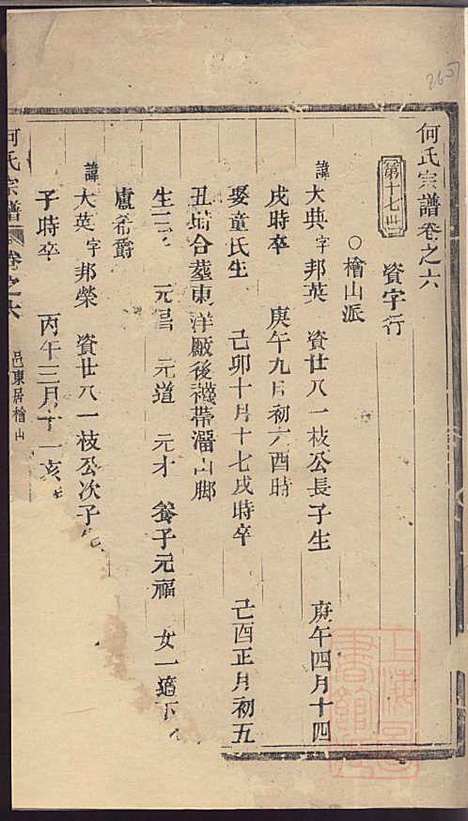 2657
何氏宗譜卷之六
第十七世 資字行
○檜山派
諱大典字邦英 資廿八一枝公長子生 庚午四月十四
戌時卒 庚午九月初六酉時
娶童氏生 己卯十月十七戌時卒 己酉正月初五
丑時合葬東洋廠後襪帶湽山脚
生三 元昌 元道 元才 養子元福 女一適下
盧希爵
諱大英字邦榮 資廿八一枝公次子生
子時卒 丙午三月十一亥
何氏宗譜 卷之六 邑東居檜山